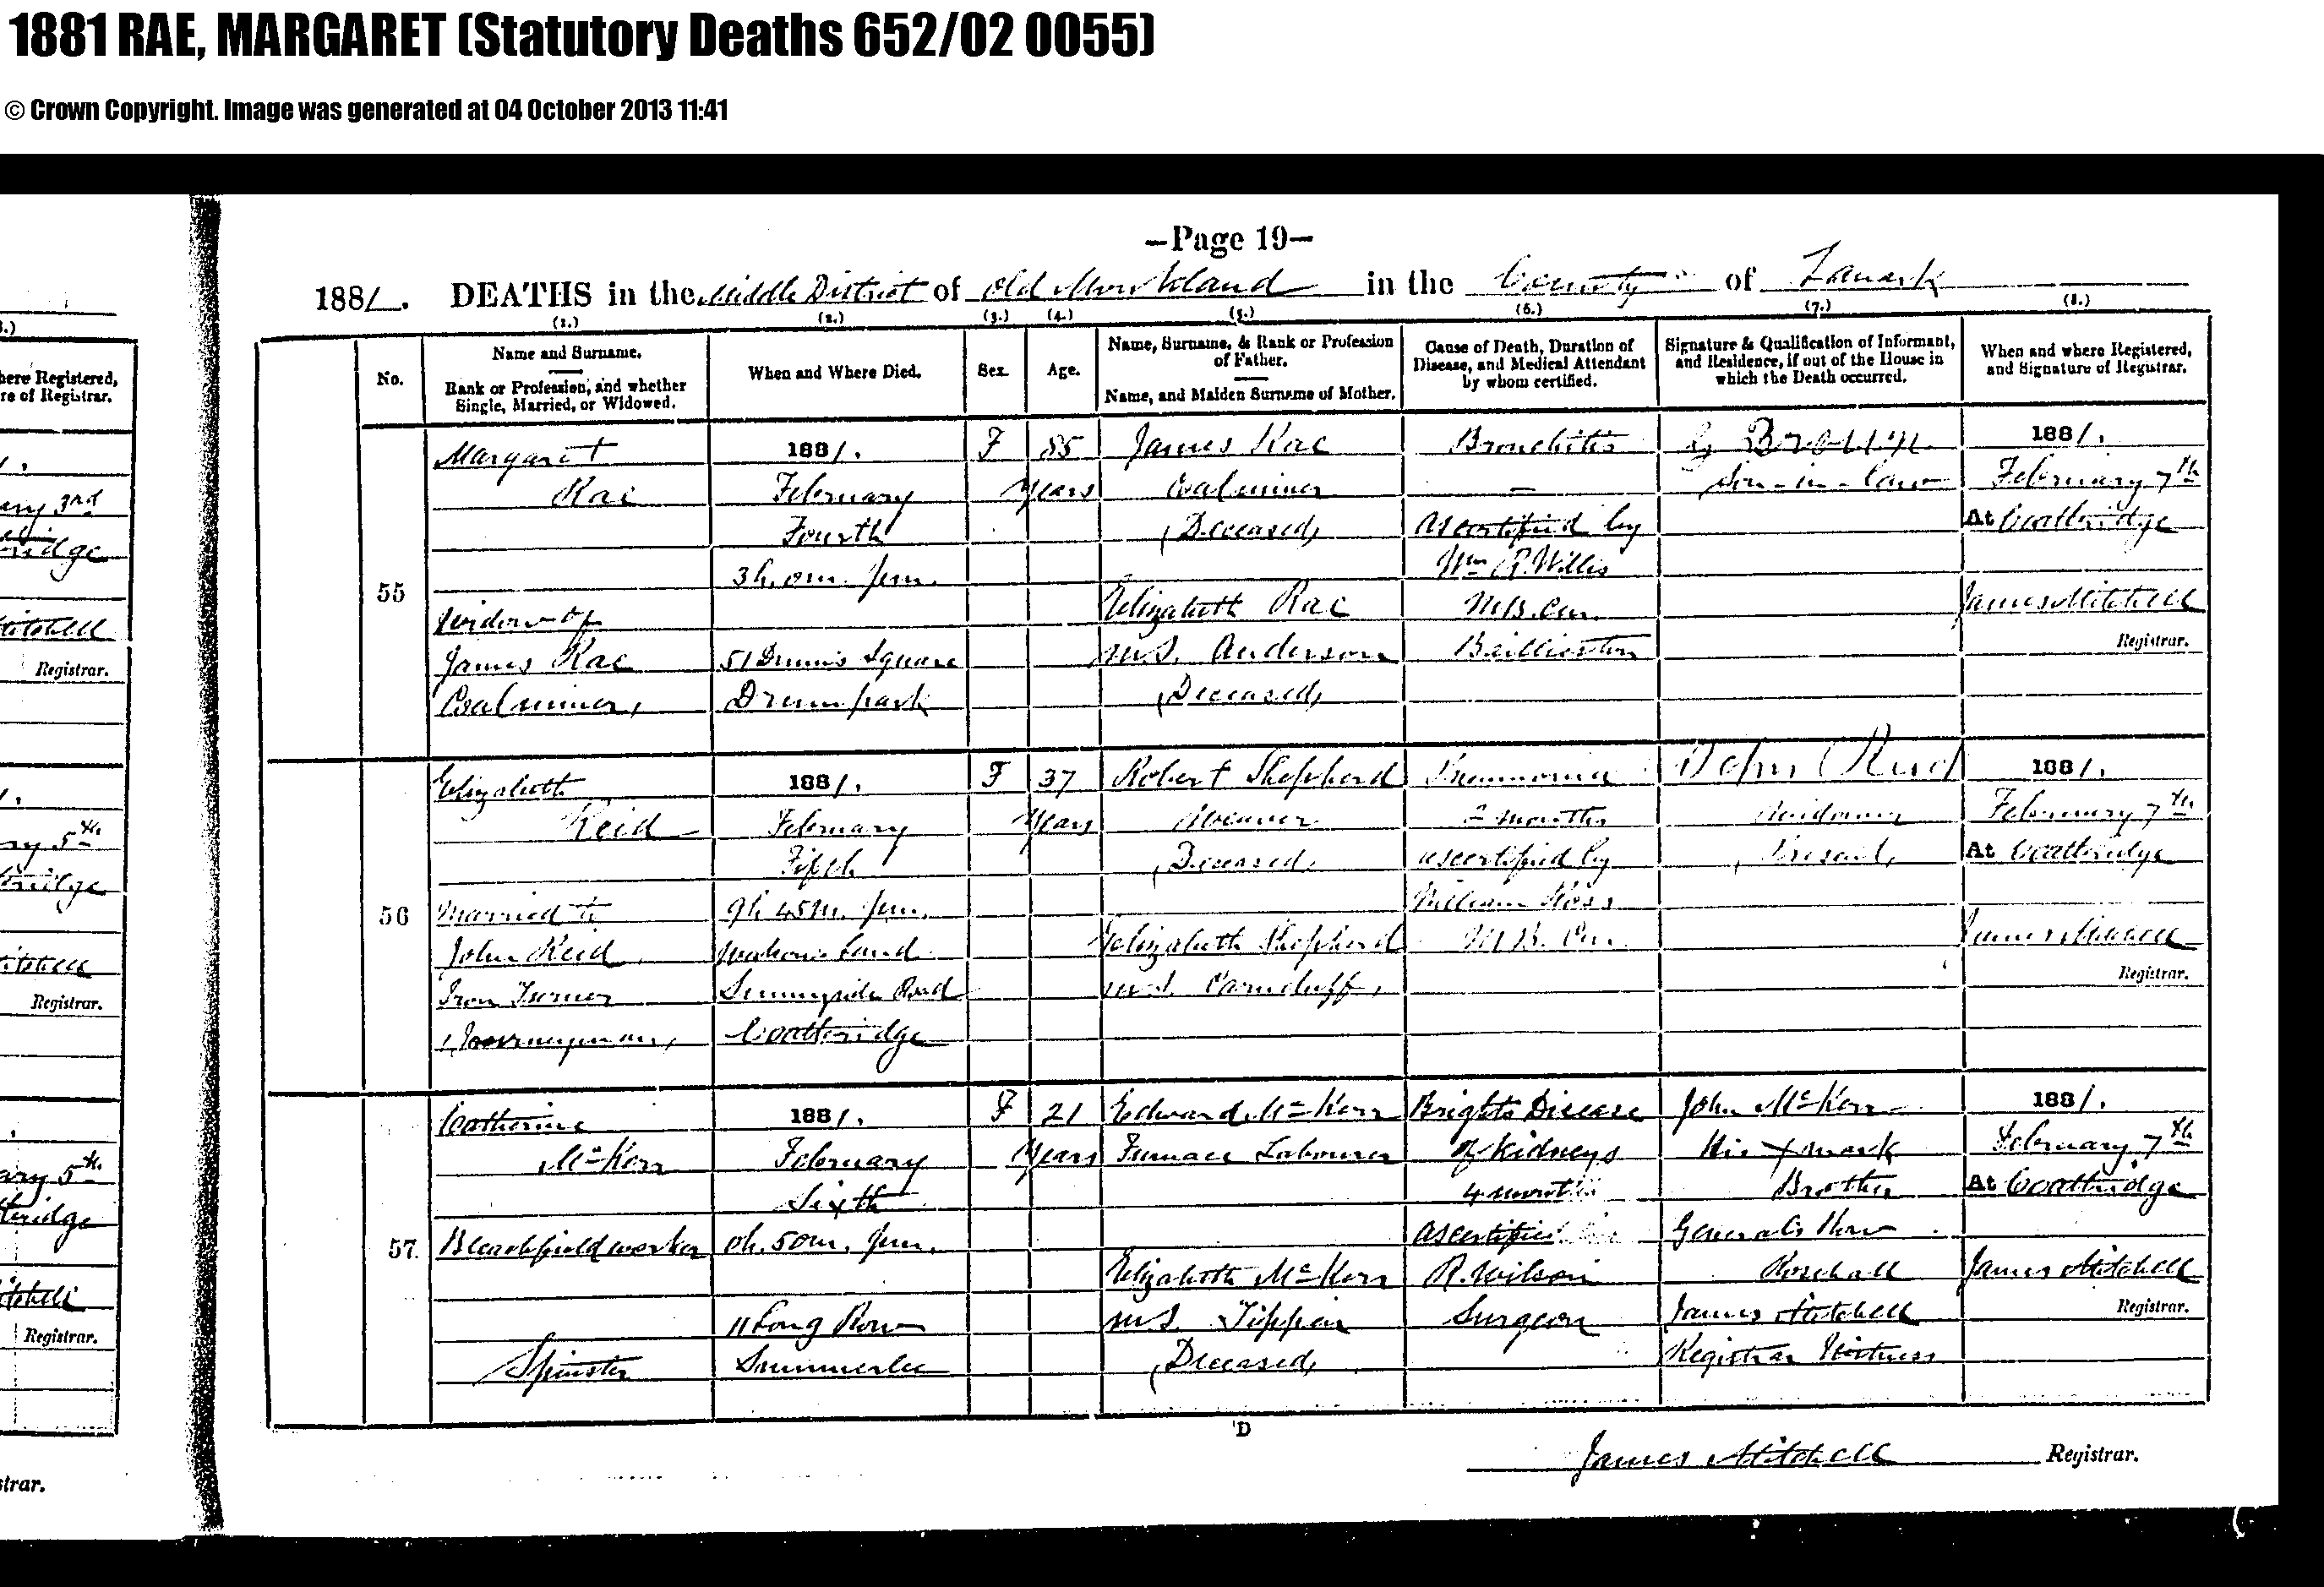 1881 RAE, MARGARET (Statutory Deaths 652/02 0055)
© Crown Copyright. Image was generated at 04 October 2013 11:41
—Page 19—
1881. DEATHS in the Middle District of Old Monkland in the County of Lanark
(1.) (2.) (3.) (4.) (5.) (6.) (7.) (8.)
No.
Name and Surname.
Rank or Profession, and whether
Single, Married, or Widowed.
When and Where Died.
Sex.
Age.
Name, Surname, & Rank or Profession
of Father.
Name, and Maiden Surname of Mother.
Cause of Death, Duration of
Disease, and Medical Attendant
by whom certified.
Signature & Qualification of Informant,
and Residence, if out of the House in
which the Death occurred.
When and where Registered,
and Signature of Registrar.
55
Margaret
Rae
Widow of
James Rae
Coalminer,
1881.
February
Fourth
3h. 0m. p.m.
51 Square
Drumpark
F
85
Years
James Rae
Coalminer
(Deceased)
Elizabeth Rae
m.s. Anderson
(Deceased)
Bronchitis
—
As certified by
Wm R. Willis
M.B. Cm.
Baillieston
Brown
Son-in-law
1881.
February 7th
At Coatbridge
James Mitchell
Registrar.
56
Elizabeth
Reid
Married to
John Reid
Iron Turner
(Journeyman)
1881.
February
Fifth
9h. 45m. p.m.
Land
Sunnyside Road
Coatbridge
F
37
Years
Robert Shepherd
Weaver
(Deceased)
Elizabeth Shepherd
m.s. Carnduff
Pneumonia
2 months
as certified by
William Ross
M.B. Cm.
John Reid
Widower
(Present)
1881.
February 7th
At Coatbridge
James Mitchell
Registrar.
57.
Catherine
McKerr
Bleachfield worker
Spinster
1881.
February
Sixth
0h. 50m. p.m.
11 Long Row
Summerlee
F
21
Years
Edward McKerr
Furnace Labourer
Elizabeth McKerr
m.s. Tippin
(Deceased)
Brights Disease
of Kidneys
4 months
As certified
R. Wilson
Surgeon
John McKerr
His x mark
Brother
Generals Row
Rosehall
James Mitchell
Registrar Witness
1881.
February 7th
At Coatbridge
James Mitchell
Registrar.
D
James Mitchell Registrar.